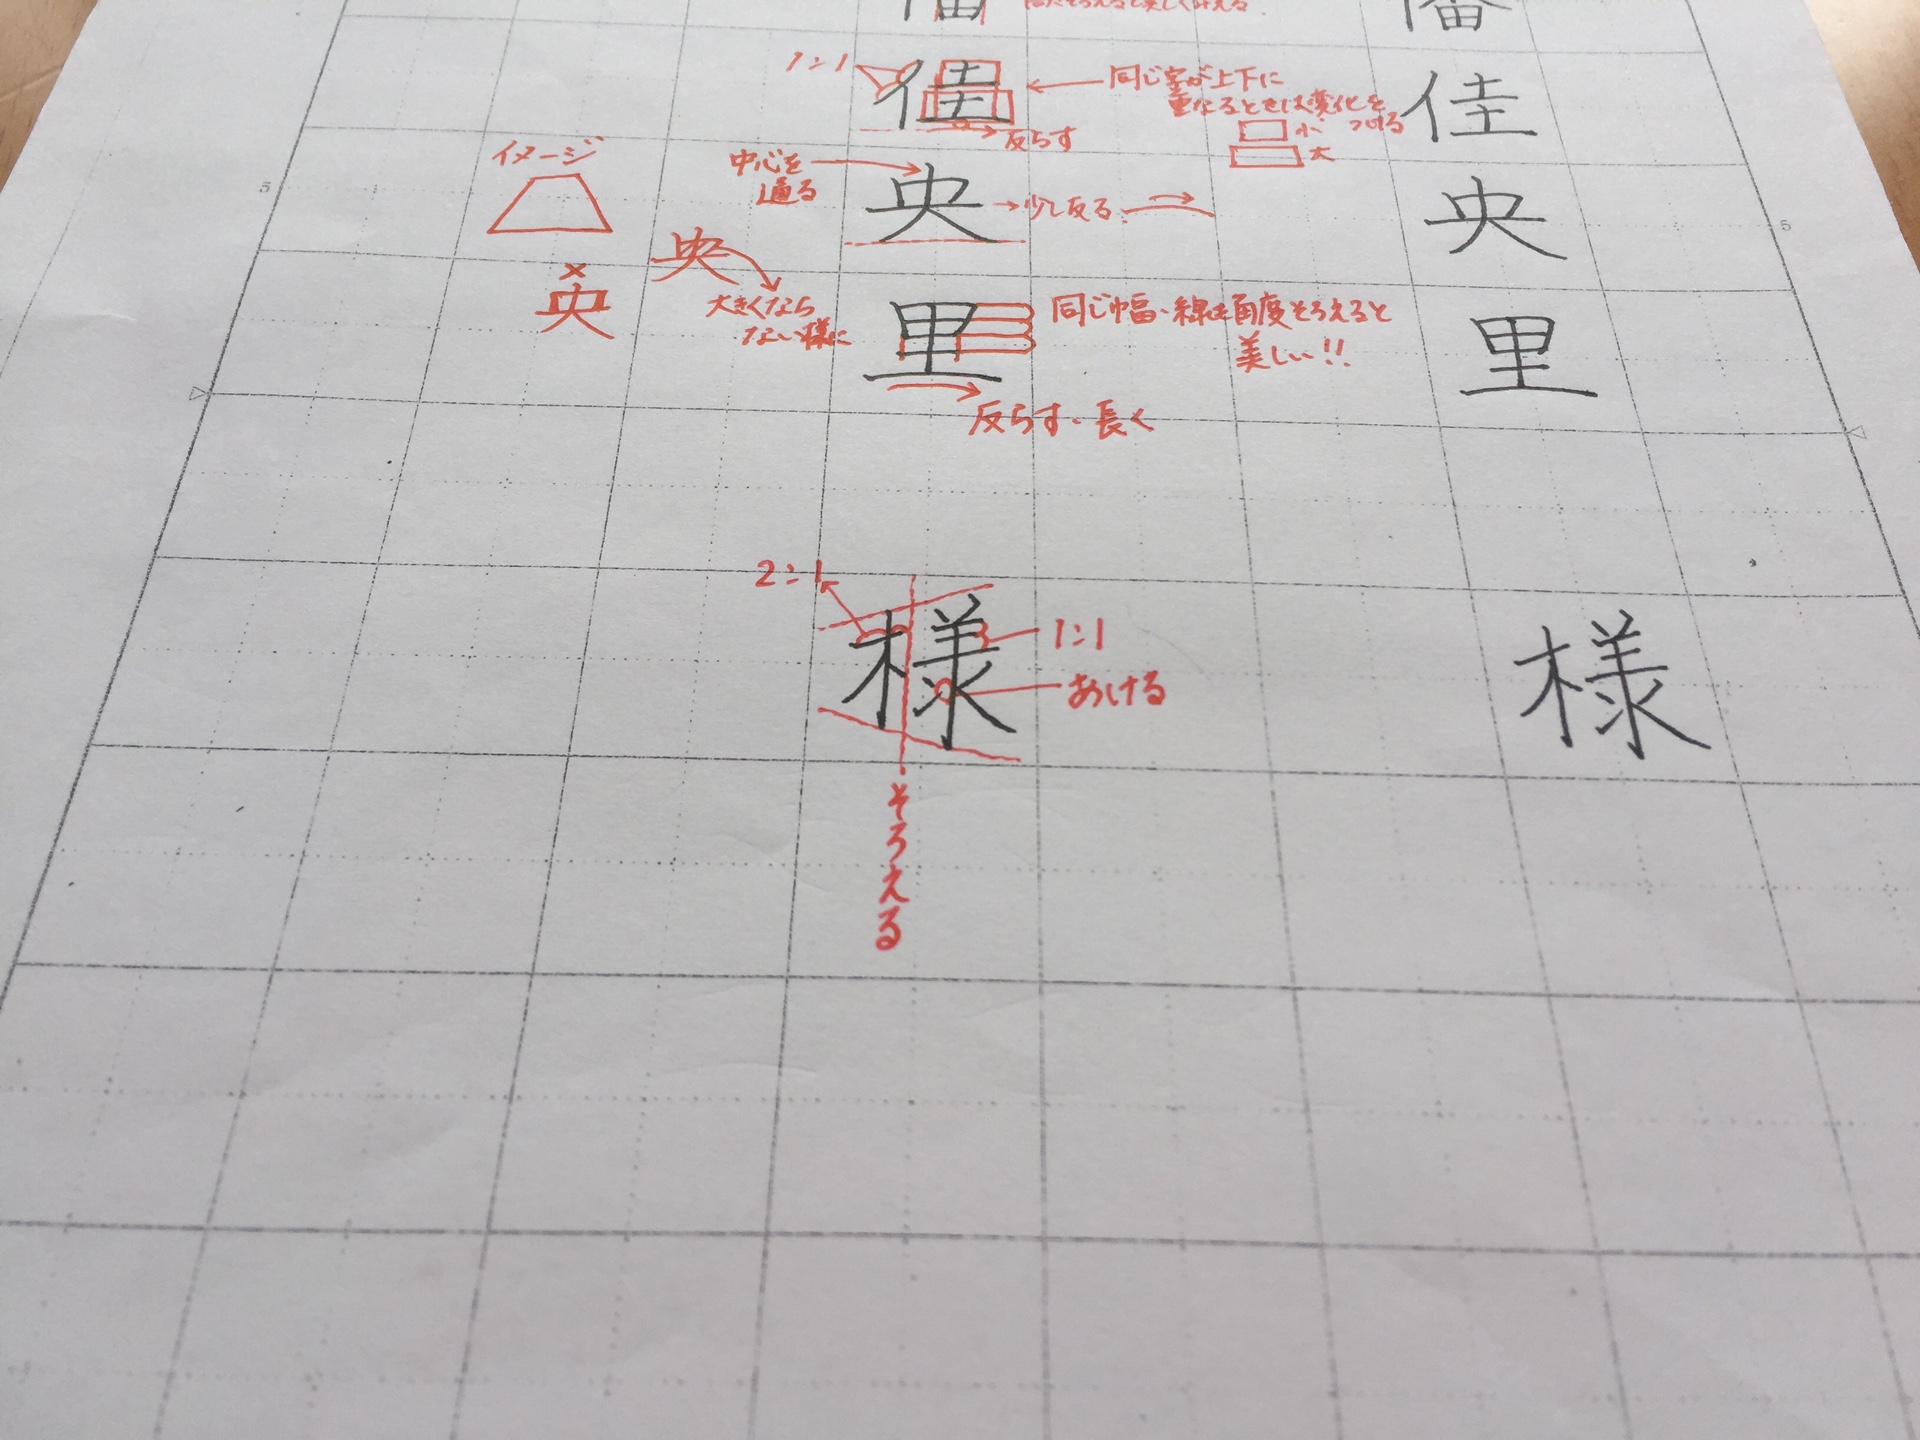 1:1
佳
同じ字が上下に
重なるときは変化を
つける
小
大
反らす
佳
イメージ
中心を
通る
央
少し反る
央
5
5
央
大きくなら
ない様に
×
央
里
同じ幅・線を角度そろえると
美しい!!
反らす・長く
里
2:1
様
1:1
あける
そろえる
様